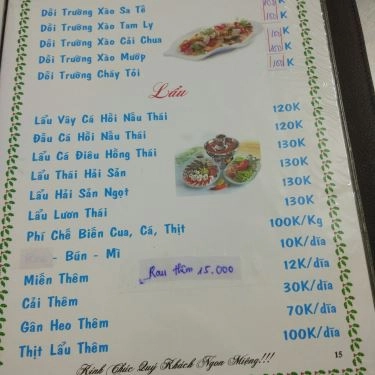 Dồi Trường Xào Sa Tế K
Dồi Trường Xào Tam Ly K
Dồi Trường Xào Cải Chua K
Dồi Trường Xào Mướp K
Dồi Trường Cháy Tỏi K
Lẩu
Lẩu Vây Cá Hồi Nấu Thái 120K
Đầu Cá Hồi Nấu Thái 120K
Lẩu Cá Điêu Hồng Thái 130K
Lẩu Thái Hải Sản 130K
Lẩu Hải Sản Ngọt 130K
Lẩu Lươn Thái 130K
Phí Chế Biến Cua, Cá, Thịt 100K/Kg
- Bún - Mì 10K/dĩa
Miến Thêm 12K/dĩa
Rau thêm 15.000
Cải Thêm 30K/dĩa
Gân Heo Thêm 70K/dĩa
Thịt Lẩu Thêm 100K/dĩa
Kính Chúc Quý Khách Ngon Miệng!!! 15